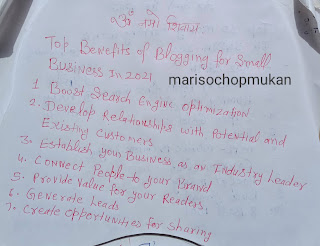 ॐ नमो शिवाय
Top Benefits of Blogging for Small
Business In 2021
marisochopmukan
1 Boost Search Engine Optimization
2. Develop Relationships with Potential and
Existing Customers
3. Establish your Business as an Industry Leader
4. Connect People to your Brand
5. Provide Value for your Readers.
6. Generate Leads
7. Create opportunities for sharing